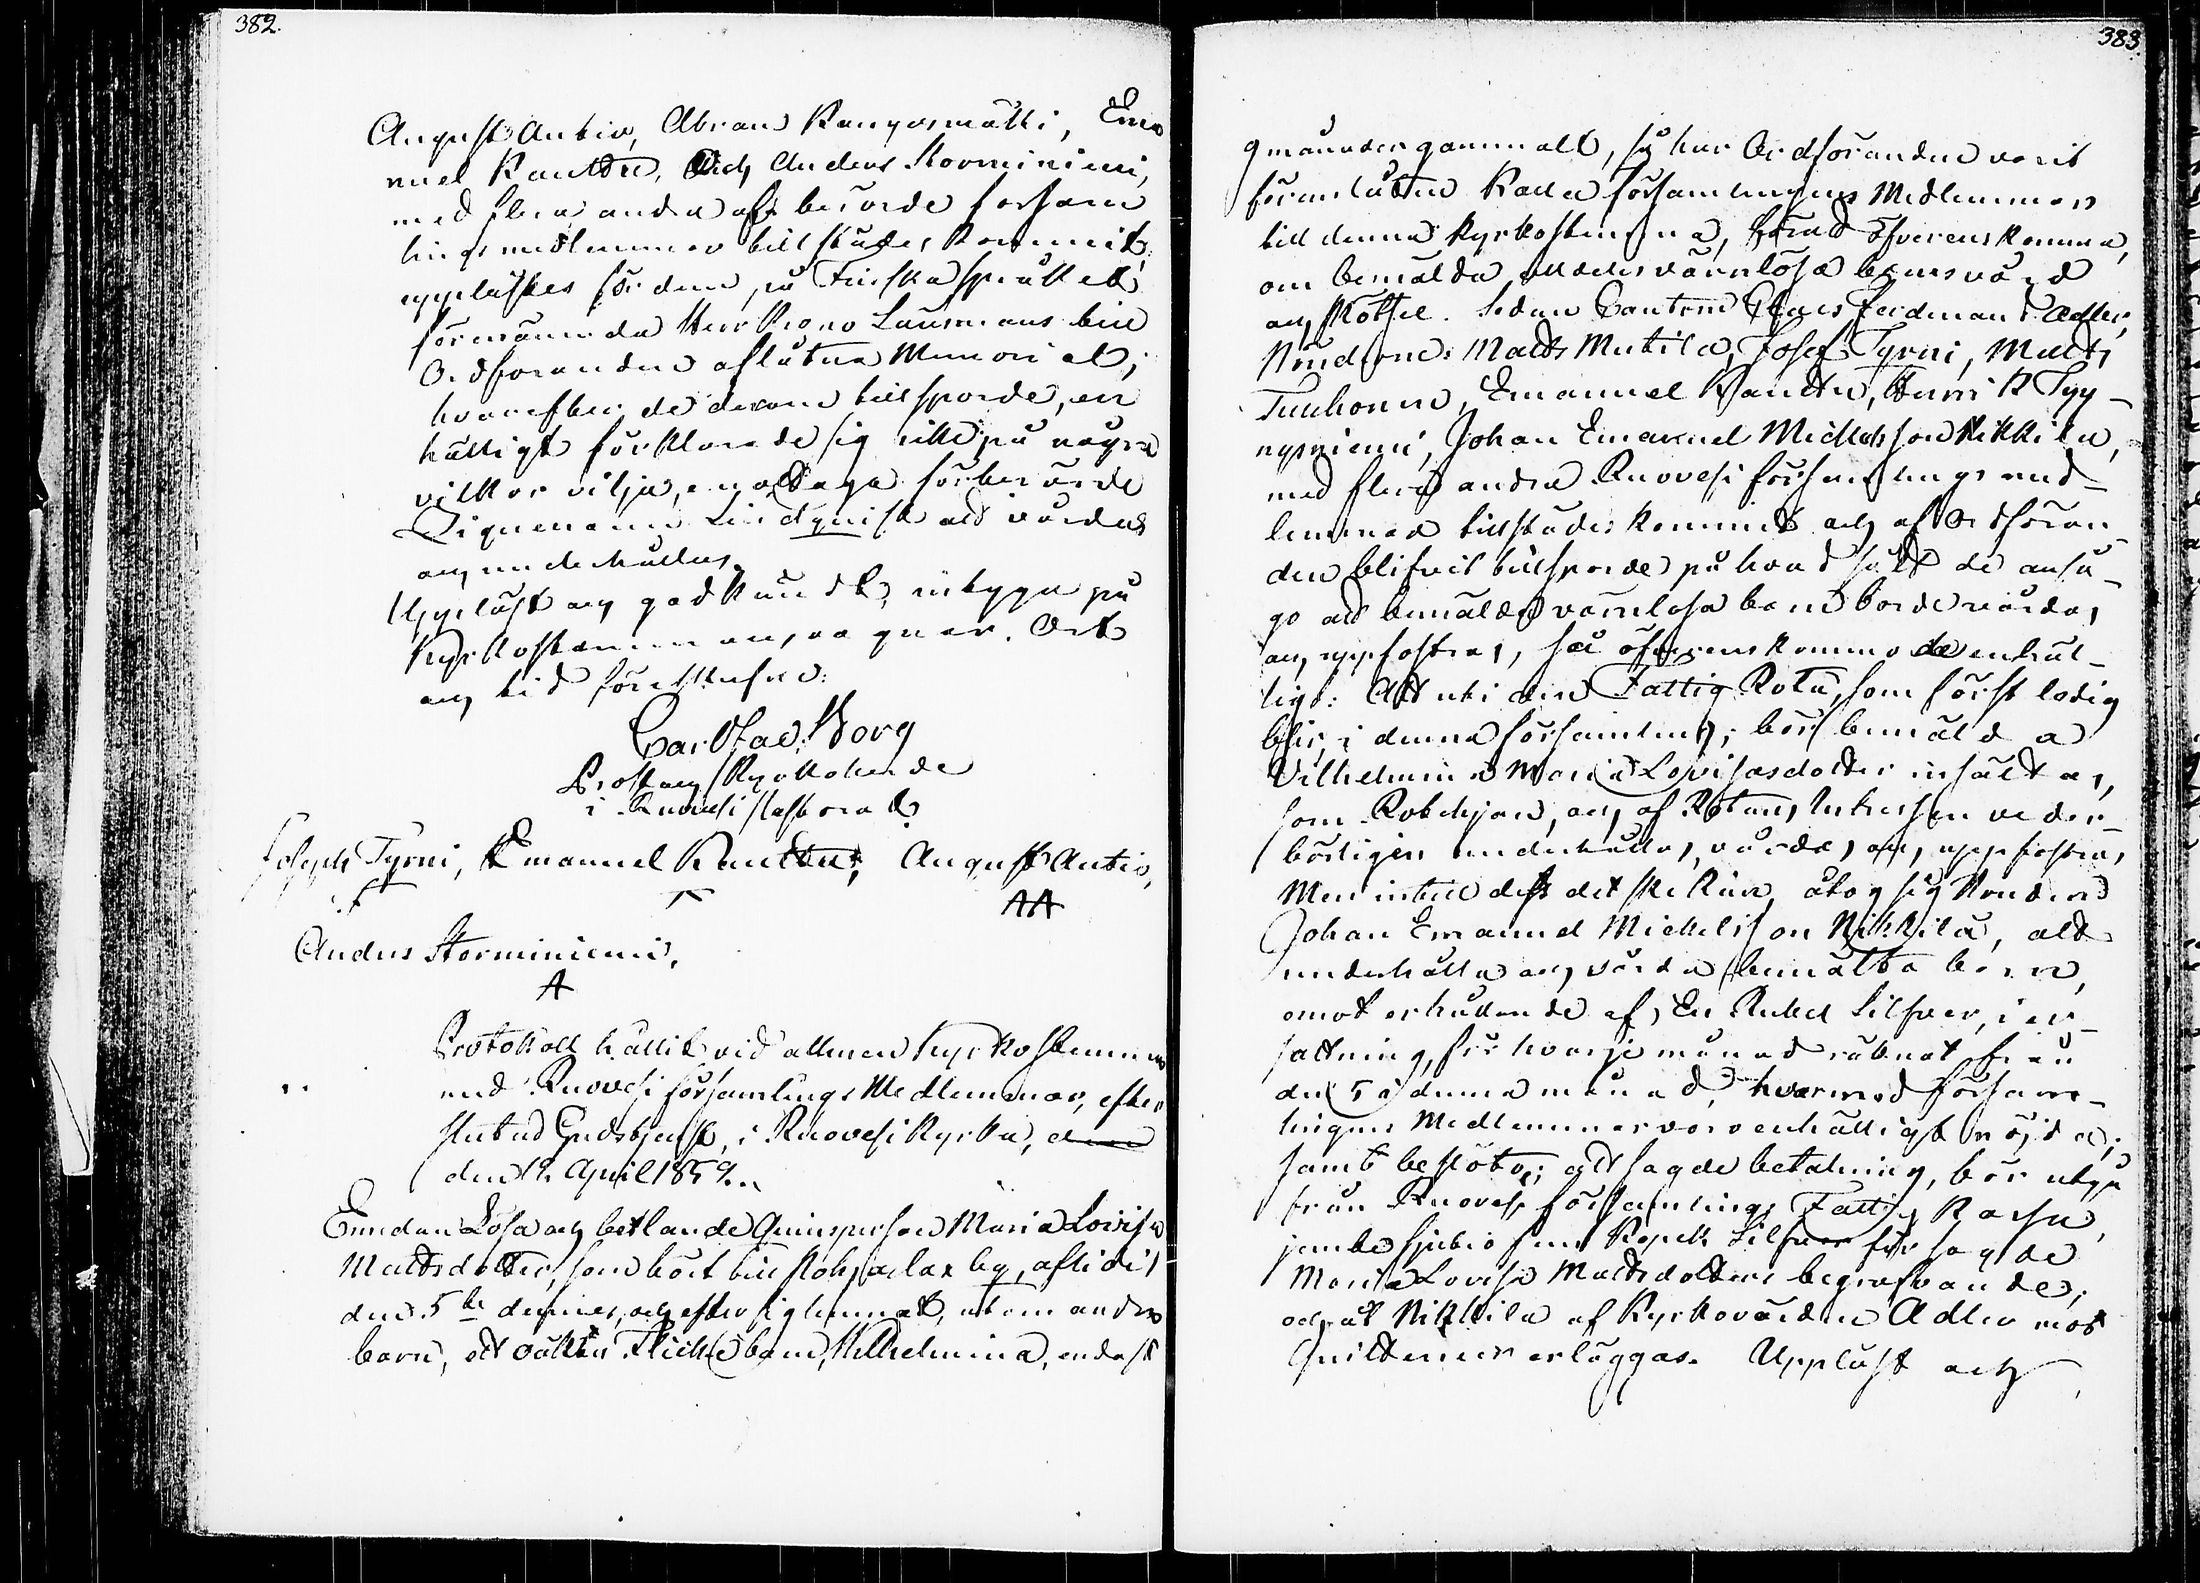 382.
August Antio, Abram Kangasmäkki, Ema
nuel Kauttu, och Anders Storminiemi,
med flera andra af berörde försam
lings medlemmar tillstädes kommit,
upplästes för dem, på Finska språket
förenämnda Herr Krono Länsmans till
Ordföranden aflåtna Memorial;
hvarefter de derom tillsporde, en
hälligt förklarade sig icke på några
vilkor vilja emottaga förberörde
Lindqvist att vårdas
och underhållas.
Uppläst och godkändt, intygar på
Kyrkostämmans vägnar. Ort
och tid förutskrefne:
Carl Stac. Borg
Prost och Kyrkoherde
i Ruovesi Pastorat
Joseph Tyrni, Emanuel Kauttu, August Antio,
AA
Anders Storminiemi,
A
Protokoll hållit vid allmän Kyrkostämma
med Ruovesi församlings Medlemmar, efter
slutad Gudstjenst, i Ruovesi Kyrka,
den 12 April 1859.
Emedan Lösa och betlande Qvinspersonen Maria Lovisa
Mattsdotter, som hört till by, aflidit
den 5te dennes, och efter sig lemnat, utom andra
barn, ett oäkta Flickebarn, Vilhelmina, endast
383.
9 månader gammalt, så har Ordföranden varit
föranlåten kalla församlingens Medlemmar
till denna Kyrkostämma, föratt öfverenskomma,
om bemälda alldeles värnlösa barns vård
och skötsel. Sedan Cantorn Claes Ferdinand Adler,
Bönderne: Matts Mutila, Josef Tyrni, Matts
Tuuhonen, Emanuel Kauttu, Henrik Tyy-
nysniemi, Johan Emanuel Michelsson Nikkilä,
med flera andra Ruovesi församlings med-
lemmar tillstädes kommit och af Ordföran-
den blifvit tillsporde på hvad sätt de anså-
go att bemälda värnlösa barn borde vårdas,
och uppfostras, så öfverenskommo de enhäl-
ligt: Att uti den Fattig Rota, som först ledig
blir, i denna församling; bör bemälda
Vilhelmina Maria Lovisasdotter insättas,
som Rotehjon, och af Rotans Intressen veder-
börligen underhållas, vårdas, och, uppfostras,
Men intill dess det ske kan, åtog sig Bonden
Johan Emanuel Michelsson Nikkilä, att
underhålla och vårda bemälta barn,
emot erhållande af, En Rubel Silfver, i er-
sättning, för hvarje månad räknat från
den 5 i denna månad, hvarmed försam-
lingens Medlemmar voro enhälligt nöjda;
samt beslöto; att sagde betalning, bör utgå
från Ruovesi församlings Fattig Kassa,
jemte sjutio fem Kopek Silfver för sagde
Maria Lovisa Mattsdotters begrafvande,
och åt Nikkilä af Kyrkovärden Adler mot
Quittencer erläggas. Uppläst och